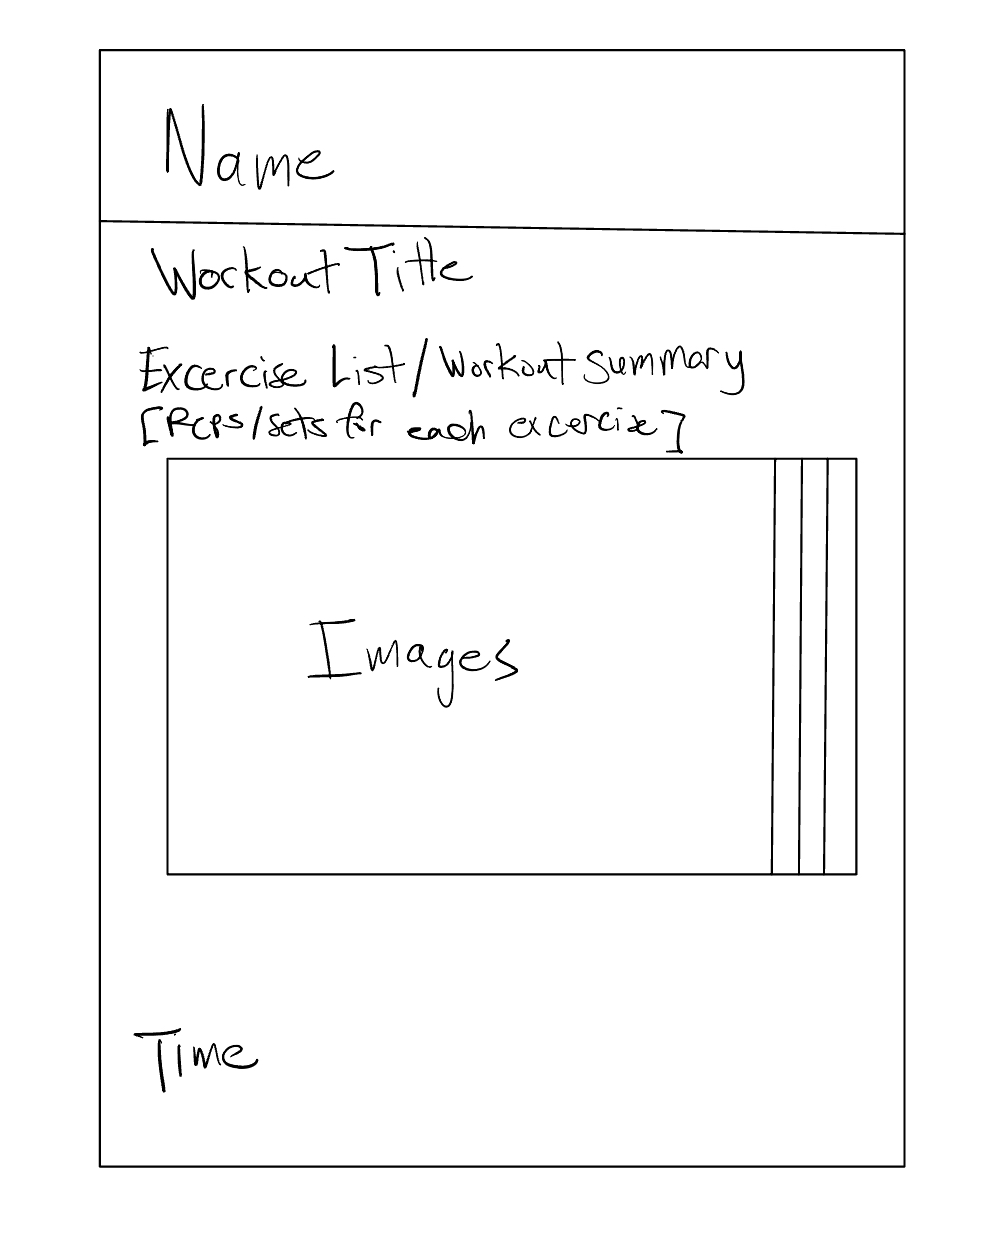 Name
Workout Title
Excercise List/Workout Summary
[Reps/sets for each excercise]
Images
Time